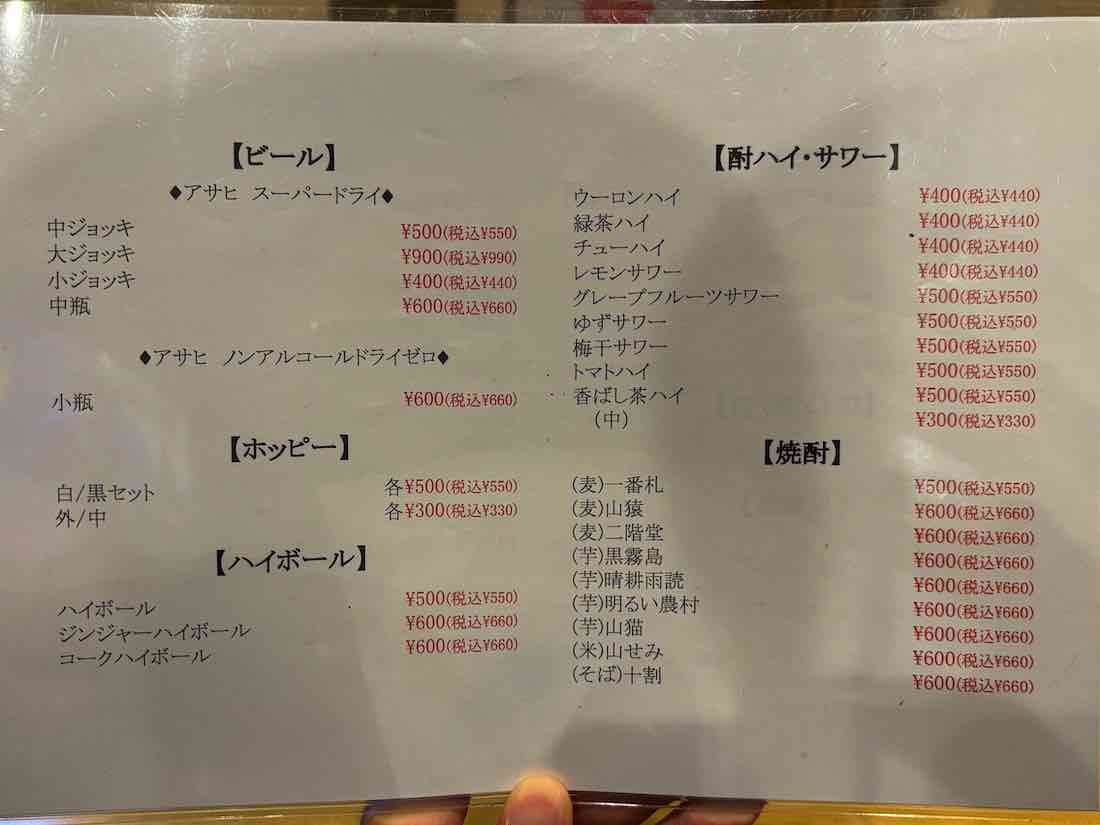 【ビール】
◆アサヒ スーパードライ◆
中ジョッキ ¥500(税込¥550)
大ジョッキ ¥900(税込¥990)
小ジョッキ ¥400(税込¥440)
中瓶 ¥600(税込¥660)
◆アサヒ ノンアルコールドライゼロ◆
小瓶 ¥600(税込¥660)
【ホッピー】
白/黒セット 各¥500(税込¥550)
外/中 各¥300(税込¥330)
【ハイボール】
ハイボール ¥500(税込¥550)
ジンジャーハイボール ¥600(税込¥660)
コークハイボール ¥600(税込¥660)
【酎ハイ・サワー】
ウーロンハイ ¥400(税込¥440)
緑茶ハイ ¥400(税込¥440)
チューハイ ¥400(税込¥440)
レモンサワー ¥400(税込¥440)
グレープフルーツサワー ¥500(税込¥550)
ゆずサワー ¥500(税込¥550)
梅干サワー ¥500(税込¥550)
トマトハイ ¥500(税込¥550)
香ばし茶ハイ ¥500(税込¥550)
(中) ¥300(税込¥330)
【焼酎】
(麦)一番札 ¥500(税込¥550)
(麦)山猿 ¥600(税込¥660)
(麦)二階堂 ¥600(税込¥660)
(芋)黒霧島 ¥600(税込¥660)
(芋)晴耕雨読 ¥600(税込¥660)
(芋)明るい農村 ¥600(税込¥660)
(芋)山猫 ¥600(税込¥660)
(米)山せみ ¥600(税込¥660)
(そば)十割 ¥600(税込¥660)